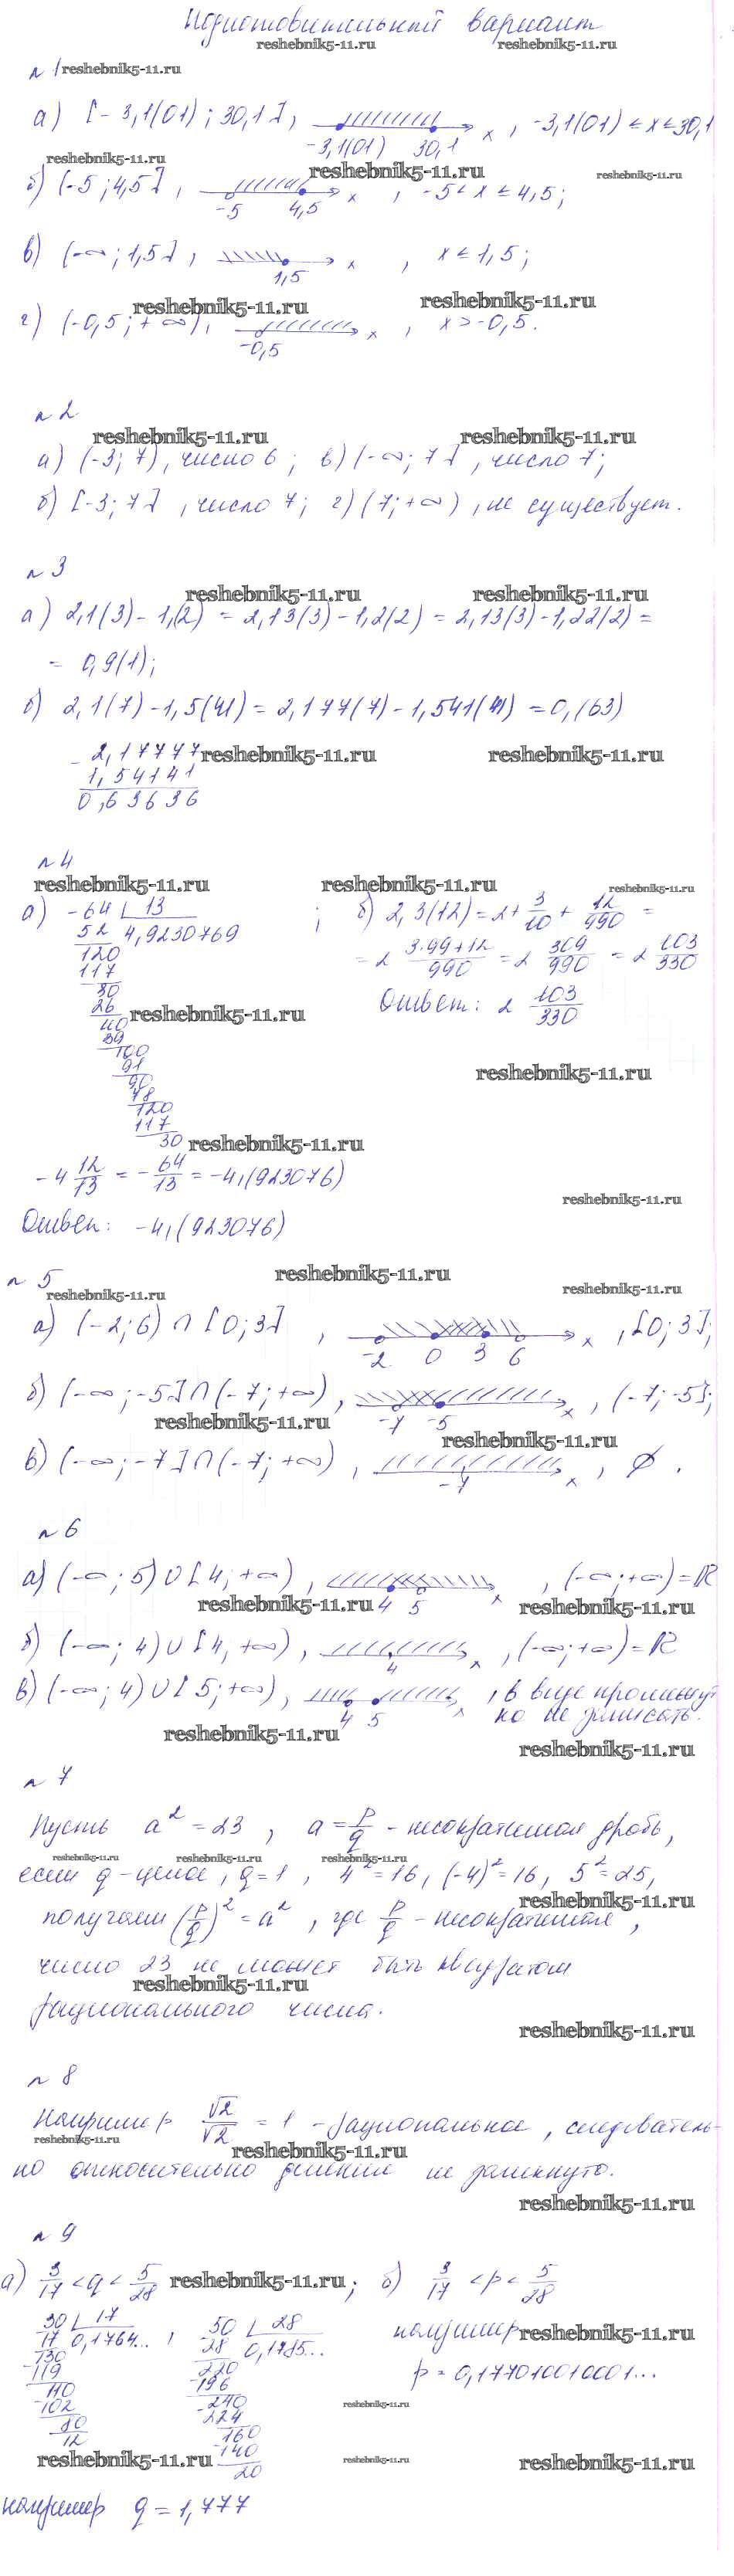 Подготовительный вариант
reshebnik5-11.ru reshebnik5-11.ru
№ 1 reshebnik5-11.ru
а) [-3,1(01); 30,1], -3,1(01) 30,1 x, -3,1(01) ≤ x ≤ 30,1
reshebnik5-11.ru reshebnik5-11.ru reshebnik5-11.ru
б) (-5; 4,5], -5 4,5 x, -5 < x ≤ 4,5;
в) (-∞; 1,5], 1,5 x, x ≤ 1,5;
reshebnik5-11.ru reshebnik5-11.ru
г) (-0,5; +∞), -0,5 x, x > -0,5.
№ 2
reshebnik5-11.ru reshebnik5-11.ru
а) (-3; 7), число 6; в) (-∞; 7], число 7;
б) [-3; 7], число 7; г) (7; +∞), не существует.
№ 3
reshebnik5-11.ru reshebnik5-11.ru
а) 2,1(3) - 1,(2) = 2,13(3) - 1,2(2) = 2,13(3) - 1,22(2) =
= 0,9(1);
б) 2,1(7) - 1,5(41) = 2,177(7) - 1,541(41) = 0,(63)
- 2,17777 reshebnik5-11.ru reshebnik5-11.ru
1,54141
0,63636
№ 4
reshebnik5-11.ru reshebnik5-11.ru reshebnik5-11.ru
а) -64 13 ; б) 2,3(12) = 2 + 3/10 + 12/990 =
52 4,9230769
120 = 2 3·99+12/990 = 2 309/990 = 2 103/330
117
30 Ответ: 2 103/330
26
40 reshebnik5-11.ru
39
100
91 reshebnik5-11.ru
90
78
120
117
30 reshebnik5-11.ru
-4 12/13 = -64/13 = -4,(923076)
reshebnik5-11.ru
Ответ: -4,(923076)
reshebnik5-11.ru
№ 5
reshebnik5-11.ru reshebnik5-11.ru
а) (-2; 6) ∩ [0; 3], -2 0 3 6 x, [0; 3];
б) (-∞; -5] ∩ (-7; +∞), -7 -5 x, (-7; -5];
reshebnik5-11.ru reshebnik5-11.ru
в) (-∞; -7] ∩ (-7; +∞), -7 x, ∅.
№ 6
а) (-∞; 5) ∪ [4; +∞), 4 5 x, (-∞; +∞) = R
reshebnik5-11.ru reshebnik5-11.ru
б) (-∞; 4) ∪ [4; +∞), 4 x, (-∞; +∞) = R
в) (-∞; 4) ∪ [5; +∞), 4 5 x, в виде промежут
ка не записать.
reshebnik5-11.ru reshebnik5-11.ru
№ 7
Пусть a² = 23, a = p/q - несократимая дробь,
reshebnik5-11.ru reshebnik5-11.ru reshebnik5-11.ru
если q - целое, q = 1, 4² = 16, (-4)² = 16, 5² = 25,
reshebnik5-11.ru
получаем (p/q)² = a², где p/q - несократимая,
число 23 не может быть квадратом
reshebnik5-11.ru
рационального числа.
reshebnik5-11.ru
№ 8
Например √2/√2 = 1 - рациональное, следователь-
reshebnik5-11.ru reshebnik5-11.ru
но относительно деления не замкнуто.
reshebnik5-11.ru
№ 9
а) 3/17 < q < 5/28 reshebnik5-11.ru; б) 3/17 < p < 5/28
30 17 , 50 28 например reshebnik5-11.ru
17 0,1764... 28 0,1785...
130 220 p = 0,17701001 0001...
-119 -196
110 240
-102 -224 reshebnik5-11.ru
80 160
12 -140
reshebnik5-11.ru 20 reshebnik5-11.ru reshebnik5-11.ru
например q = 1,777